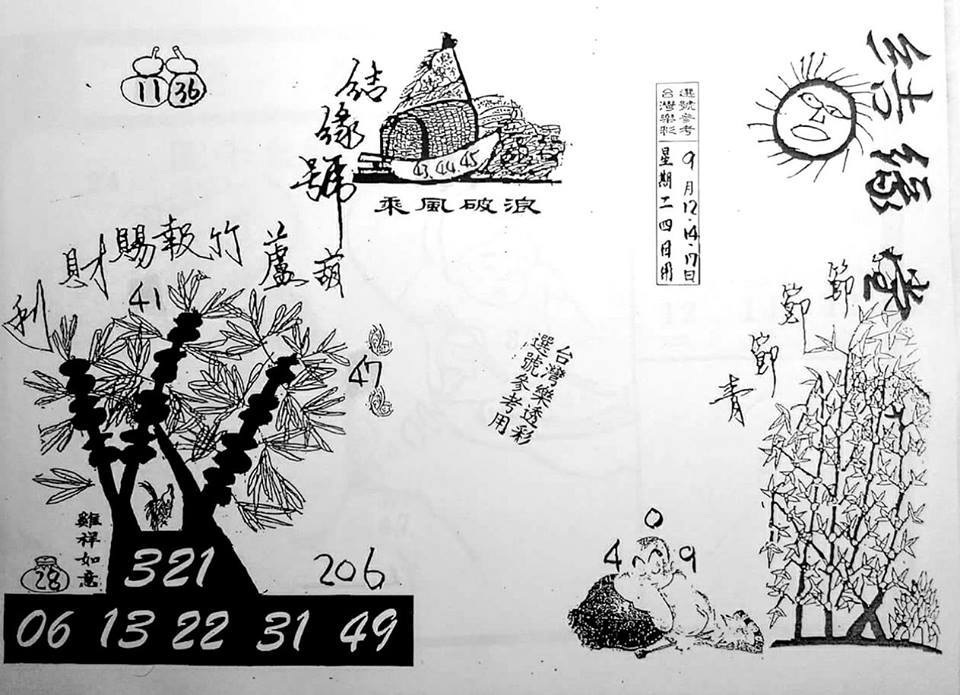 結緣堂
選號參考
台灣樂彩
9月12.14.17日
星期二四日用
結緣號
43.44.45
乘風破浪
11 36
葫蘆竹報賜財利
41
47
台灣樂透彩
選號參考用
節節節青
雞祥如意
28
321
206
0
4 9
06 13 22 31 49